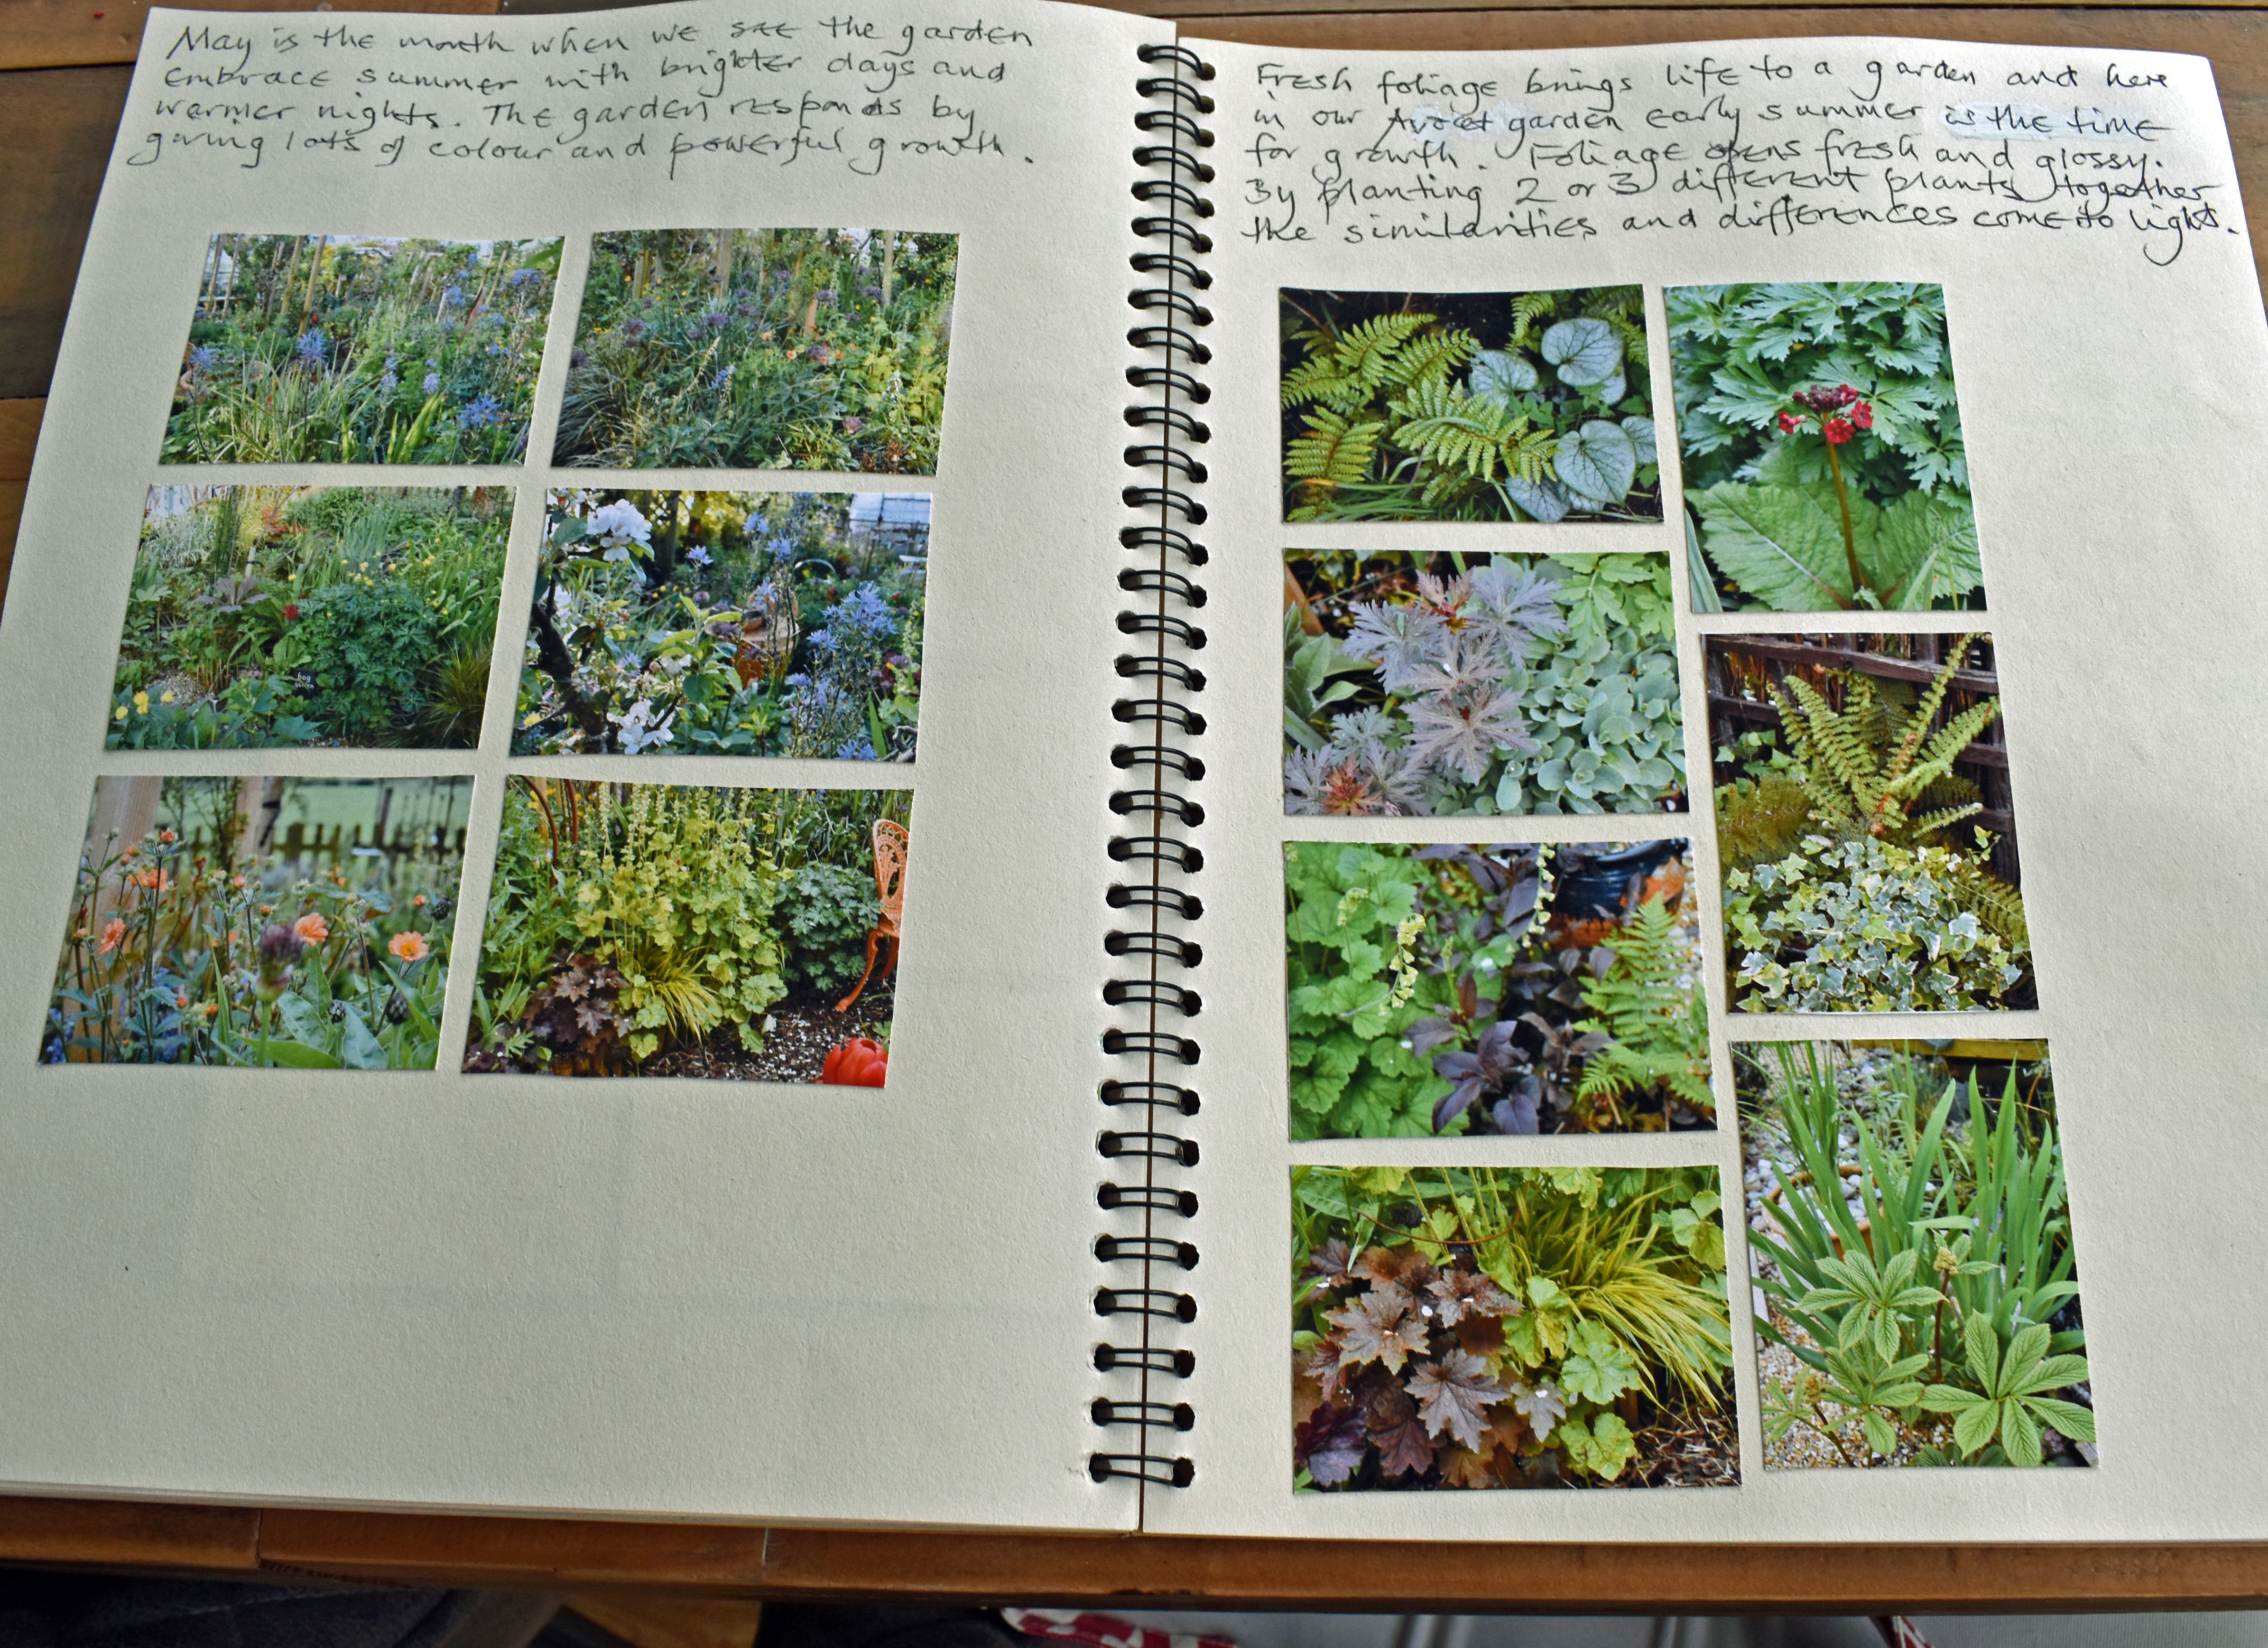 May is the month when we see the garden
embrace summer with brighter days and
warmer nights. The garden responds by
giving lots of colour and powerful growth.
Fresh foliage brings life to a garden and here
in our Avocet garden early summer is the time
for growth. Foliage opens fresh and glossy.
By planting 2 or 3 different plants together
the similarities and differences come to light.
bog
garden